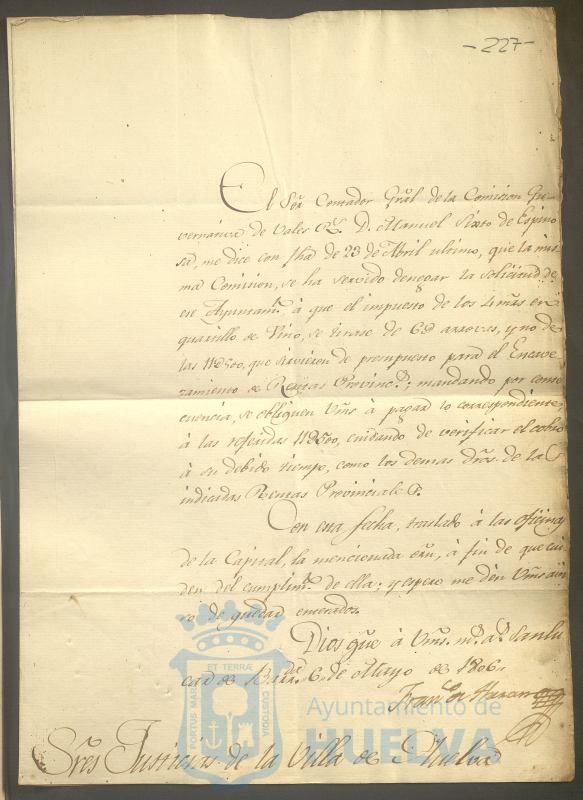 -227-
El Señ Contador Gral de la Comision Gu-
vernativa de Vales Rs. D. Manuel Sixto de Espino
sa, me dice con fha de 23 de Abril ultimo, que la mis
ma Comision, se ha servido denegar la solicitud de
ese Ayuntamto. à que el impuesto de los 4 mrs. en
quartillo de Vino, se tirase de 6@ arrovas, y no de
las 11@500, que sirvieron de presupuesto para el Encave-
zamiento de Rentas Provincs.; mandando por conse
cuencia, se obliguen Vms. à pagar lo correspondiente,
à las referidas 11@500, cuidando de verificar el cobro
à su debido tiempo, como los demas dros. de las
indicadas Rentas Provinciales.
Con esta fecha, traslado à las oficinas
de la Capital, la mencionada orn, à fin de que cui
den del cumplimto. de ella; y espero me dén Vms. avi
so de quedar enterados.
Dios gue à Vms. ms. as. Sanlu
car de Barrda. 6 de Mayo de 1806.
Sres Justicias de la Villa de Huelva
PORTUS MARIS ET TERRÆ CUSTODIA
Ayuntamiento de
HUELVA